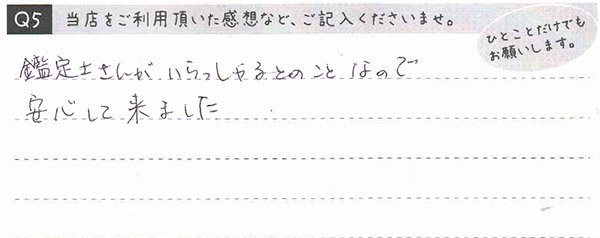 Q5 当店をご利用頂いた感想など、ご記入くださいませ。
ひとことだけでも
お願いします。
鑑定士さんがいらっしゃるとのことなので
安心して来ました